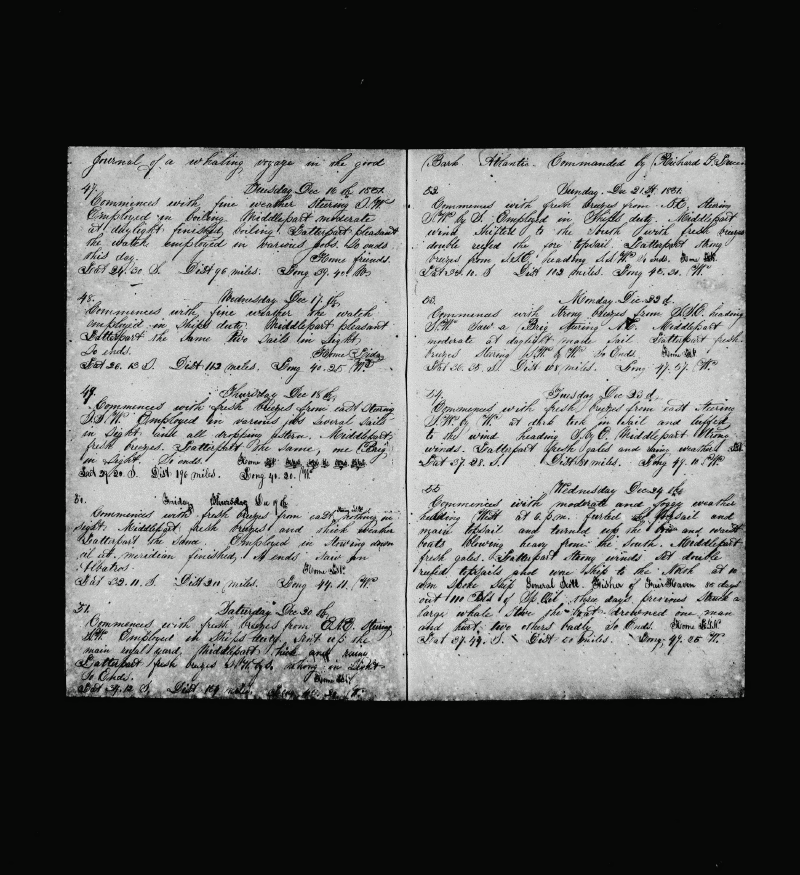 Journal of a whaling voyage in the good
47. Tuesday Dec 16th 1851.
Commences with fine weather Stering S.W.
Employed in boiling Middlepart moderate
at daylight finished boiling. Latterpart pleasant
the watch employed in various jobs. So ends
this day. Home friends.
Lat 24.30 S. Dist 96 miles. Long 39.40 W.
48. Wednesday Dec 17th
Commences with fine weather The watch
employed in Ships duty. Middlepart pleasant
Latterpart the Same two Sails in Sight
So ends. Home
Lat 26.13 S. Dist 112 miles. Long 40.25 W.
49. Thursday Dec 18th
Commences with fresh brezes from east Stering
S.S.W. Employed in various jobs Several Sails
in Sight and all dropping astern. Middlepart
fresh brezes. Latterpart the Same, one Brig
in Sight. So ends. Home
Lat 29.20 S. Dist 196 miles. Long 42.20. W
50. Friday Thursday Dec 19th
Commences with fresh brezes from east nothing in
Sight. Middlepart fresh brezes and thick weather
Latterpart the Same. Employed in Stowing down
oil at meridian finished, So ends Saw an
Albatros. Home
Lat 32.11. S. Dist 211 miles. Long 44.11. W.
51. Saturday Dec 20th
Commences with fresh brezes from Stering
S.W. Employed in Ships duty, Sent up the
main royal yard, Middlepart thick and rainy
Latterpart fresh brezes nothing in Sight
So Ends. Home
Lat 34.12 S. Dist miles. Long
Bark Atlantic Commanded by Richard G.
52. Sunday. Dec 21st 1851.
Commences with fresh brezes from N.E. Stering
S.W. by S. Employed in Ships duty. Middlepart
wind Shifted to the South with fresh brezes
double reefed the fore topsail. Latterpart Strong
brezes from heading So Ends. Home
Lat 35.10. S. Dist 103 miles. Long 45.30. W.
53. Monday Dec 22d.
Commences with Strong brezes from heading
S.W. Saw a Brig Stering N.E. Middlepart
moderate at daylight made Sail Latterpart fresh
brezes Stering S.W. by W. So Ends. Home
Lat 36.35. S. Dist 108 miles. Long 47.27. W.
54. Tuesday Dec 23d.
Commences with fresh brezes from east Stering
S.W. by W. at dark took in Sail and luffed
to the wind heading Middlepart Strong
winds. Latterpart fresh gales and rainy weather
Lat 37.28. S. Dist miles. Long 49.11. W.
55. Wednesday Dec 24th
Commences with moderate and foggy weather
heading West at 6 p.m. furled topsail and
main topsail and turned up the bow and waist
boats blowing heavy from the South. Middlepart
fresh gales. Latterpart Strong winds Set double
reefed topsails and wore Ship to the North at 10
a.m. Spoke Ship General Scott. Fisher of Fair Haven 85 days
out 100 Bbls of Sp. Oil three days previous Struck a
large whale Stove the boat drowned one man
and hurt two others badly So Ends. Home
Lat 37.49. S. Dist 20 miles. Long. 49.25 W.